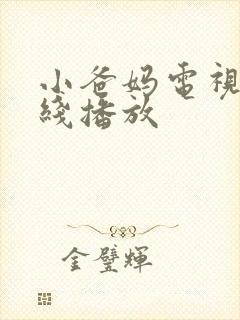 小爸妈電視
綫播放
金璧輝